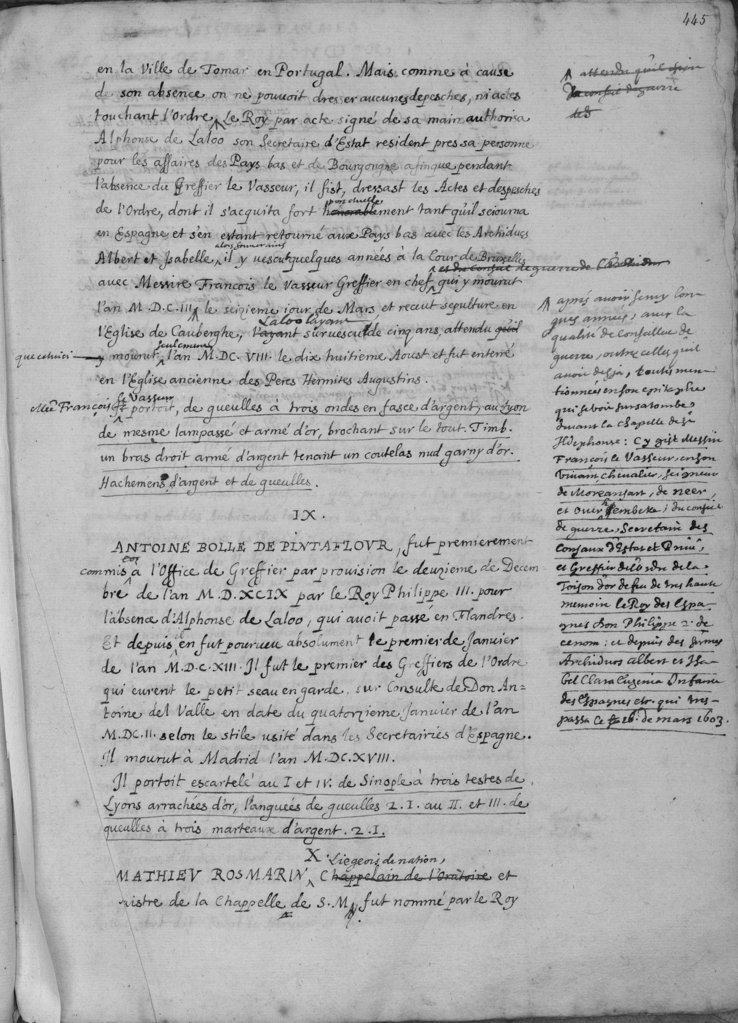 445
en la Ville de Tomar en Portugal. Mais comme à cause
de son absence on ne pouvoit dresser aucunes depesches, ni actes
touchant l'Ordre, Le Roy par acte signé de sa main authorisa
Alphonse de Laloo son Secretaire d'Estat resident pres sa personne
pour les affaires des Pays bas et de Bourgongne afinque pendant
l'absence du Greffier le Vasseur, il fist, dressast les Actes et despesches
ponctuelle
de l'Ordre, dont il s'acquita fort honorablement tant qu'il seiourna
en Espagne et s'en estant retourné aux Pays bas avec les Archiducs
alors souverains
Albert et Isabelle, il y vescut quelques années à la Cour de Bruxelles
et du Conseil de guerre de
avec Messire François le Vasseur Greffier en chef, qui y mourut
l'an M.D.C.III le seizieme jour de Mars et receut sepulture en
Laloo layant
l'Eglise de Cauberghe, l'ayant survescu de cinq ans, attendu qu'il
seulement
que celuici y mourut l'an M.DC.VIII. le dix huitieme Aoust et fut enterré
en l'Eglise ancienne des Peres Hermites Augustins.
le Vasseur
Mre François portoit, de gueulles à trois ondes en fasce d'argent, au Lyon
de mesme lampassé et armé d'or, brochant sur le tout. Timb.
un bras droit armé d'argent tenant un coutelas nud garny d'or.
Hachemens d'argent et de gueulles.
IX.
ANTOINE BOLLE DE PINTAFLOUR, fut premierement
commis à l'Office de Greffier par provision le deuzieme de Decem
bre de l'an M.D.XCIX par le Roy Philippe III. pour
l'absence d'Alphonse de Laloo, qui avoit passé en Flandres.
Et depuis en fut pourveu absolument le premier de Janvier
de l'an M.D.C.XIII. Il fut le premier des Greffiers de l'Ordre
qui eurent le petit seau en garde, sur Consulte de Don An=
toine del Valle en date du quatorzieme Janvier de l'an
M.DC.II. selon le stile usité dans les Secretairies d'Espagne.
Il mourut à Madrid l'an M.DC.XVIII.
Il portoit escartelé au I et IV. de Sinople à trois testes de
Lyons arrachées d'or, l'anguées de gueulles 2.I. au II. et III. de
gueulles à trois marteaux d'argent. 2.I.
X
Liegeois de nation,
MATHIEU ROSMARIN, Chappelain de l'Oratoire et
nistre de la Chappelle de S.M, fut nommé par le Roy
attendu qu'il
du conseil de guerre
des
apres avoir servy lon
gues années, avec la
qualité de conseiller de
guerre, outre celles qu'il
avoit desja, toutes men=
tionnées en son epitaphe
qui se voit sur sa tombe
devant la chapelle de St
Ildephonse: Cy gist Messire
François le Vasseur, en son
vivant chevalier, seigneur
de Moreansart, de neer,
et over heembeke; du conseil
de guerre, Secretaire des
Consaux d'Estat et Privé,
et Greffier de l'ordre de la
Toison d'or de feu de tres haute
memoire le Roy des Espa=
gnes don Philippe 2. de
ce nom: et depuis des
Archiducs Albert et Isa
bel Clara Eugenia Infante
des Espagnes etc. qui tres=
passa le 16. de mars 1603.